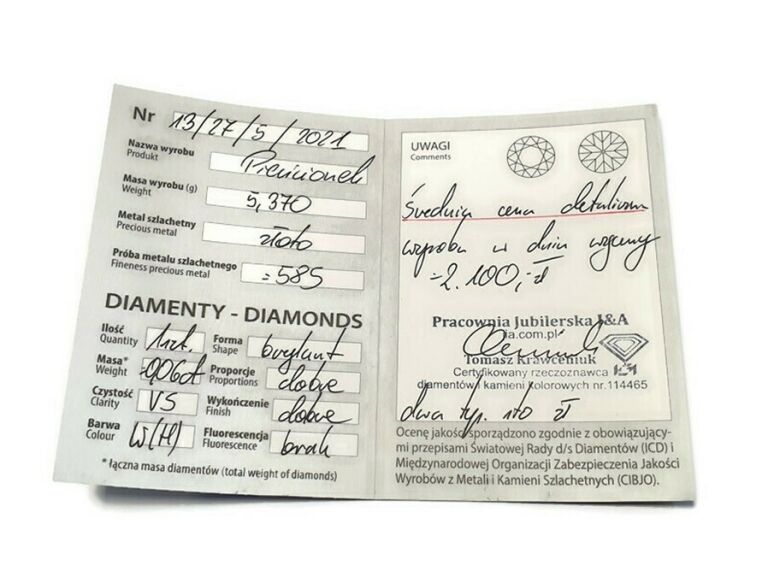 Nr 13/27/5/2021
Nazwa wyrobu
Produkt
Pierścionek
Masa wyrobu (g)
Weight
5,370
Metal szlachetny
Precious metal
złoto
Próba metalu szlachetnego
Fineness precious metal
=585
DIAMENTY - DIAMONDS
Ilość
Quantity
1szt.
Forma
Shape
brylant
Masa*
Weight
=0,06ct
Proporcje
Proportions
dobre
Czystość
Clarity
VS
Wykończenie
Finish
dobre
Barwa
Colour
W(H)
Fluorescencja
Fluorescence
brak
* łączna masa diamentów (total weight of diamonds)
UWAGI
Comments
Średnia cena detaliczna
wyrobu w dniu wyceny
=2.100,- zł
Pracownia Jubilerska J&A
ia.com.pl
Tomasz Krawceniuk
Certyfikowany rzeczoznawca
diamentów i kamieni kolorowych nr.114465
dwa tyś. sto zł
Ocenę jakości sporządzono zgodnie z obowiązujący-
mi przepisami Światowej Rady d/s Diamentów (ICD) i
Międzynarodowej Organizacji Zabezpieczenia Jakości
Wyrobów z Metali i Kamieni Szlachetnych (CIBJO).